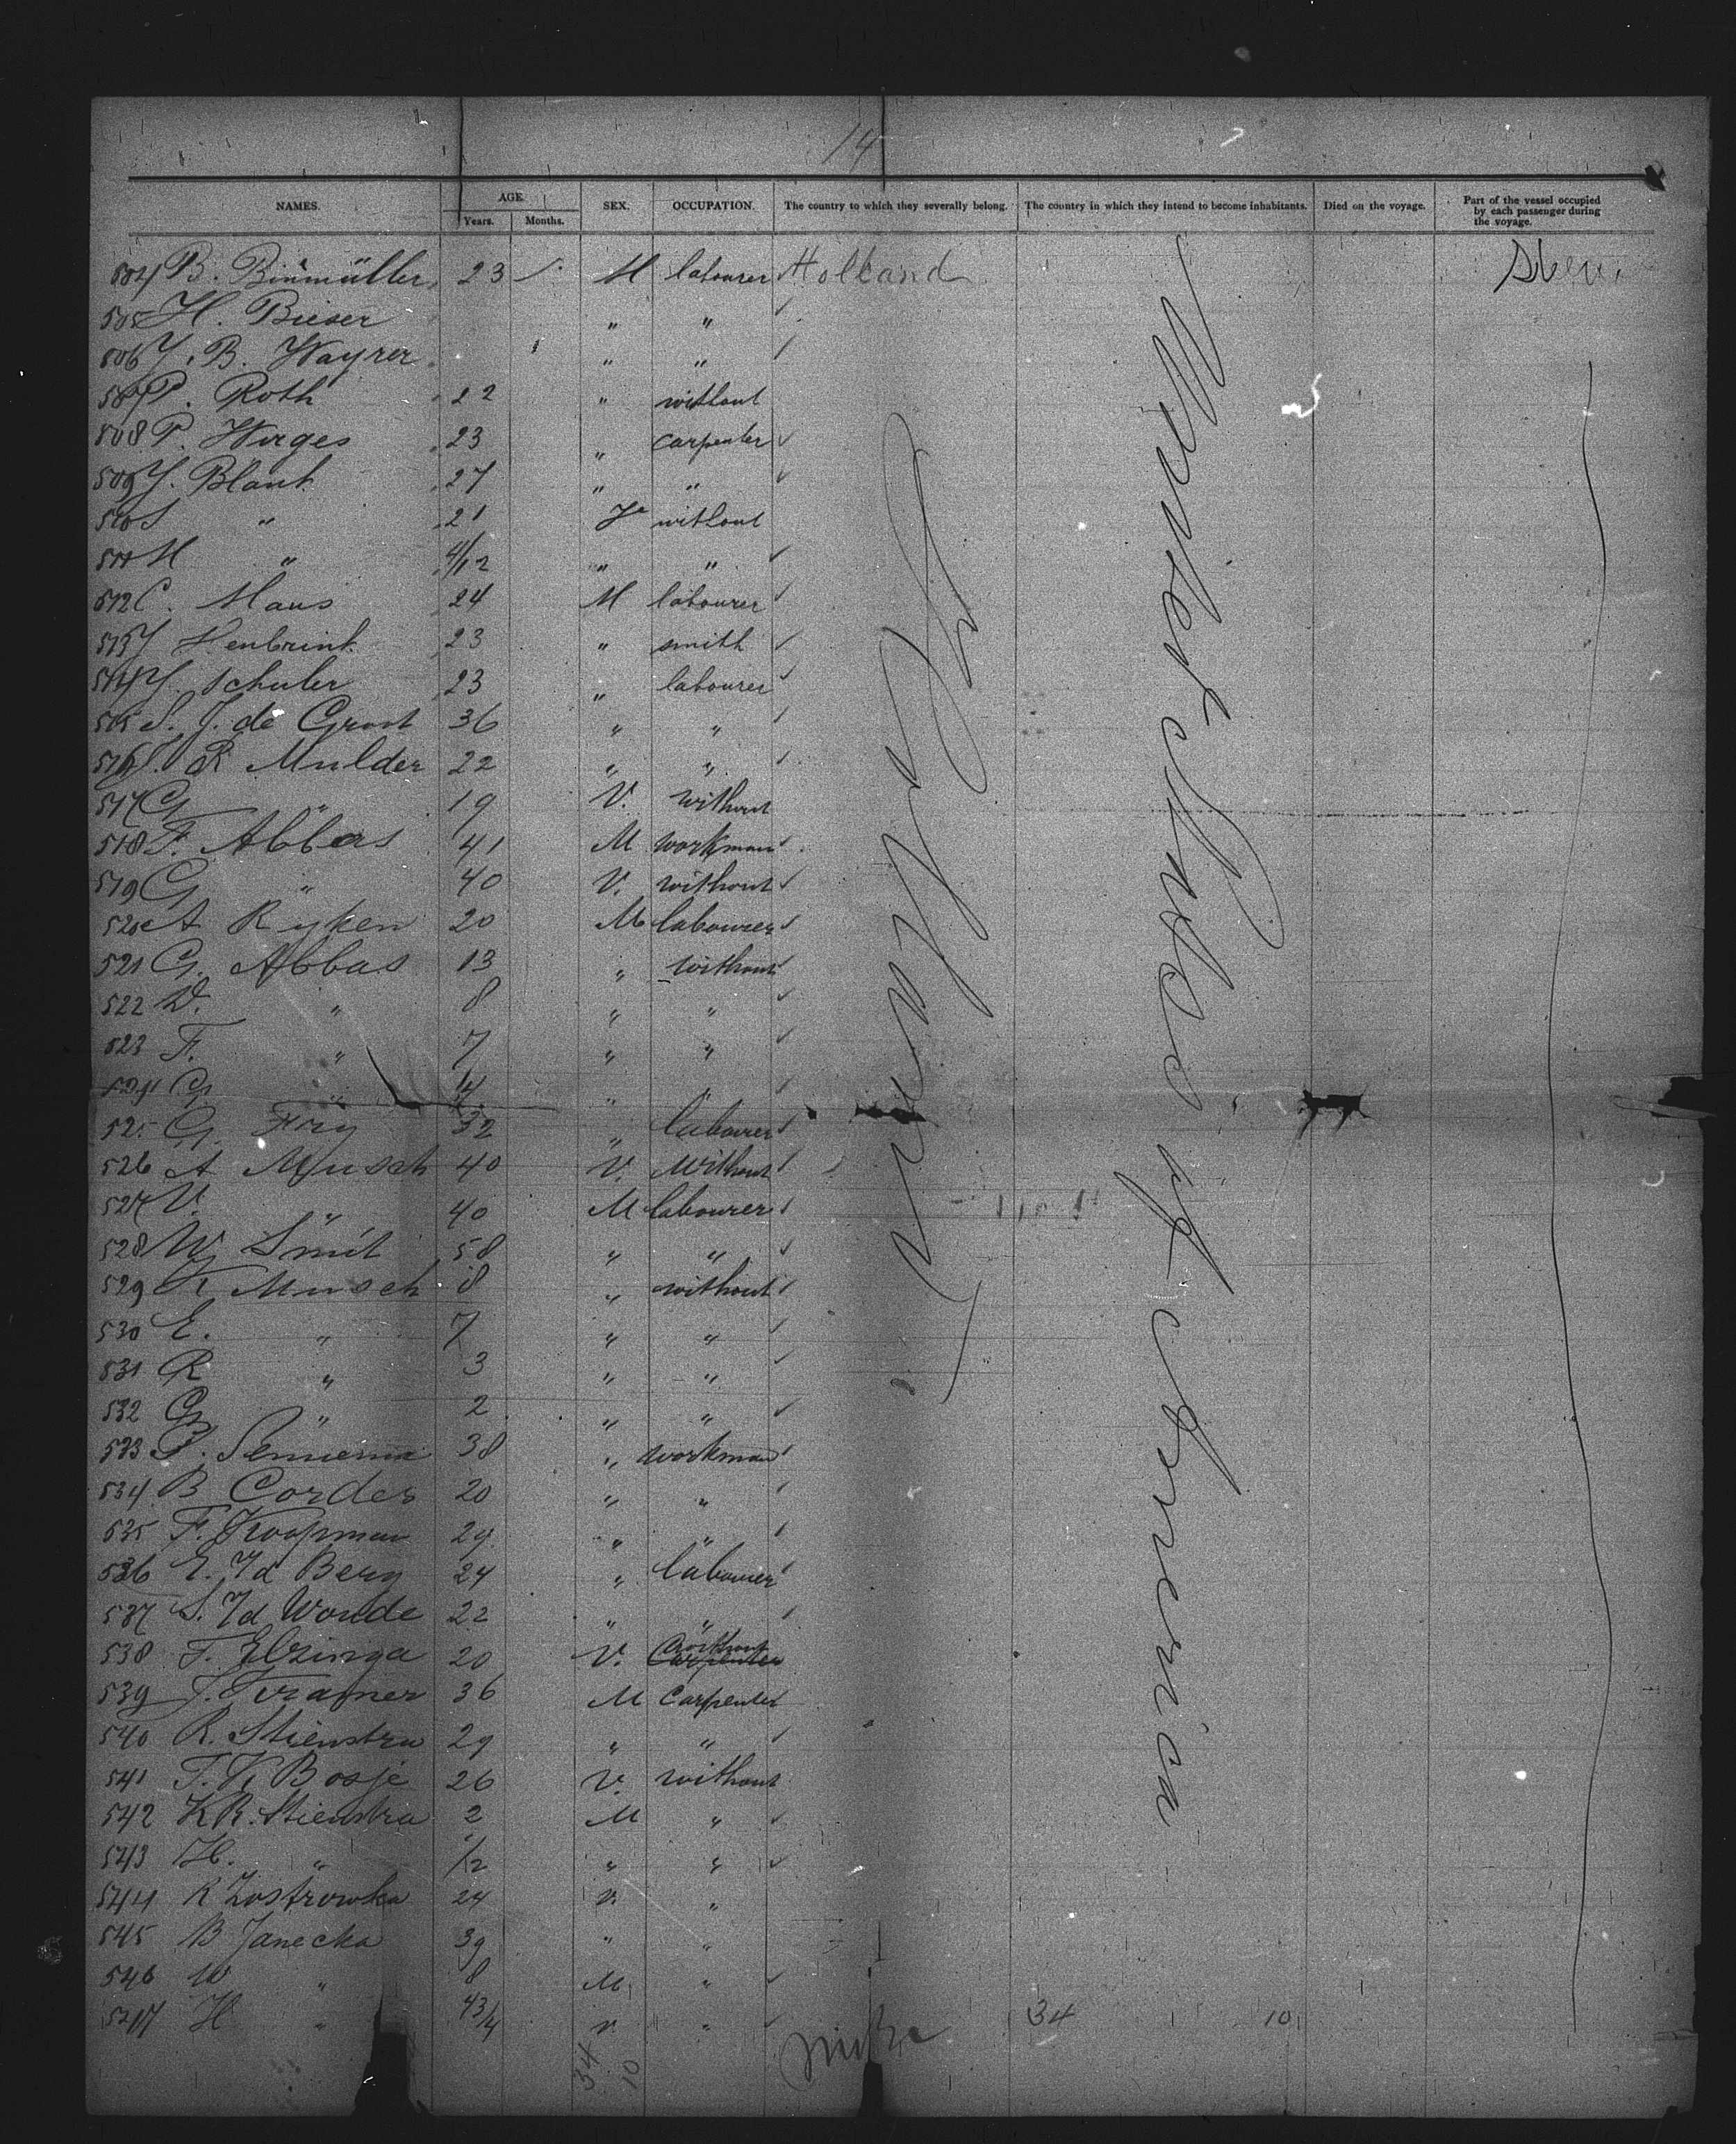 14
NAMES. AGE. SEX. OCCUPATION. The country to which they severally belong. The country in which they intend to become inhabitants. Died on the voyage. Part of the vessel occupied by each passenger during the voyage.
Years. Months.
504 B. Binmüller 23 M labourer Holland
505 H. Bieser " "
506 J. B. Wayrer " "
507 P. Roth 22 " without
508 P. Wirges 23 " carpenter
509 J. Blank 27 " "
510 S " 21 Fe without
511 M " 4/12 " "
512 C. Maus 24 M labourer
513 J Henbrink 23 " smith
514 J. Schuler 23 " labourer
515 S. J. de Groot 36 " "
516 S. R Mulder 22 " "
517 G " 19 V. without
518 F. Abbas 41 M workman
519 G " 40 V. without
520 A Ryken 20 M labourer
521 G. Abbas 13 " without
522 D. " 8 " "
523 F. " 7 " "
524 G. " 4 " "
525 G. Fry 32 " labourer
526 A Musch 40 V. Without
527 V. " 40 M labourer
528 W Smit 58 " "
529 K Musch 8 " without
530 E. " 7 " "
531 R " 3 " "
532 G " 2 " "
533 38 " workman
534 B Cordes 20 " "
535 F. Koopman 29 " "
536 E. v/d Berg 24 " labourer
537 S. v/d Woude 22 " "
538 F. Elzinga 20 V. without Carpenter
539 J. Kramer 36 M Carpenter
540 R. Stienstra 29 " "
541 T. K. Bosje 26 V. without
542 K R. Stienstra 2 M "
543 H. " 1/2 " "
544 K Zostrowka 24 v. "
545 B Janecka 39 " "
546 W " 8 M. "
547 H " 4 3/4 v. "
Holland
United States of America
34 10
34 10